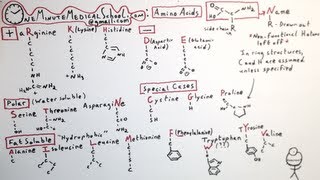 One Minute Medical School
@gmail.com
Amino Acids
Name
side chain
R - Drawn out
*Non-Functional Halves
left off*
In ring structures,
C and N are assumed
unless specified
+ aRginine K (Lysine) Histidine
- D (Aspartic Acid) E (Glutamic acid)
Polar (Water soluble)
Serine Threonine AsparagiNe
Special Cases
Cystine Glycine Proline
Fat Soluble "Hydrophobic"
Alanine Isoleucine Leucine Methionine F (Phenylalanine) Tryptophan TYrosine Valine